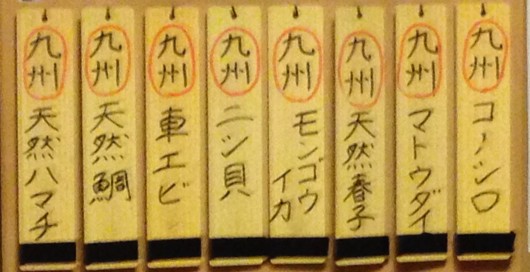 九州 コノシロ
九州 マトウダイ
九州 天然春子
九州 モンゴウイカ
九州 ニシ貝
九州 車エビ
九州 天然鯛
九州 天然ハマチ